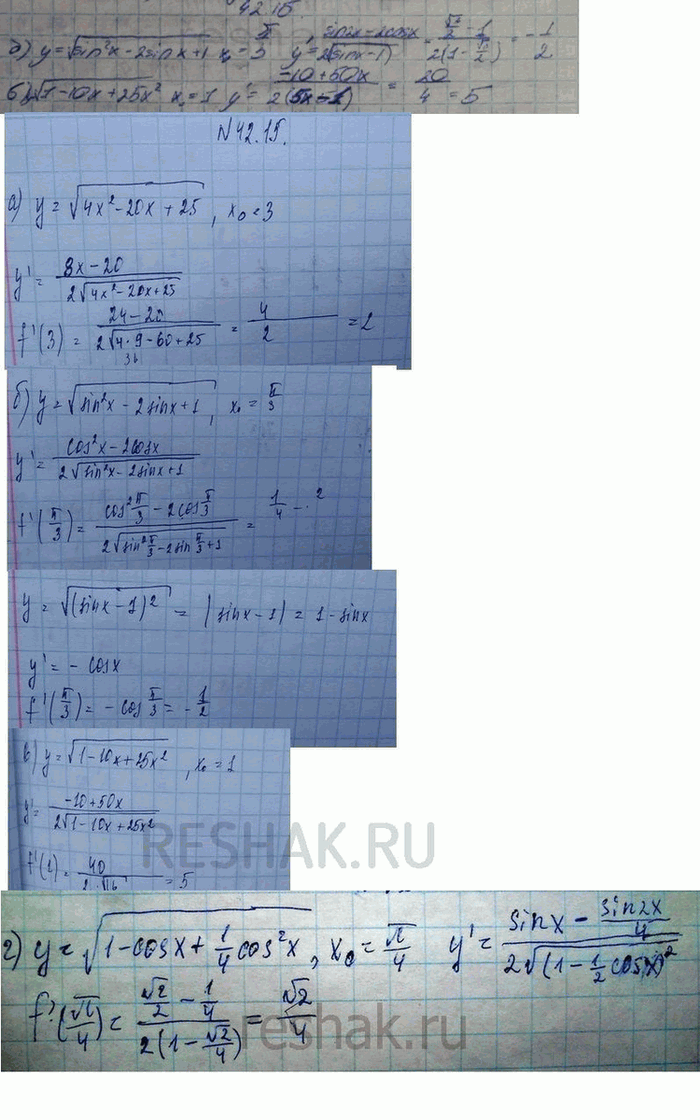 42.15.
б) y=√(sin²x-2sinx+1) x₀=π/3 y'=(sin2x-2cosx)/(2(sinx-1))
в) y=√(1-10x+25x²) x₀=1 y'=(-10+50x)/(2(5x-1)) = 20/4 = 5
N42.15.
а) y=√(4x²-20x+25), x₀=3
y'=(8x-20)/(2√(4x²-20x+25))
f'(3)=(24-20)/(2√(4·9-60+25))=4/2=2
36
б) y=√(sin²x-2sinx+1), x₀=π/3
y'=(cos²x-2cosx)/(2√(sin²x-2sinx+1))
f'(π/3)=(cos²π/3-2cosπ/3)/(2√(sin²π/3-2sinπ/3+1))=
y=√((sinx-1)²)=|sinx-1|=1-sinx
y'=-cosx
f'(π/3)=-cosπ/3=-1/2
в) y=√(1-10x+25x²), x₀=1
y'=(-10+50x)/(2√(1-10x+25x²))
RESHAK.RU
f'(1)=40/(2·√16)=5
г) y=√(1-cosx+1/4cos²x), x₀=π/4 y'=(sinx-sin2x/4)/(2√(1-1/2cosx)²)
f'(π/4)=(√2/2-1/4)/(2(1-√2/4))=√2/4
reshak.ru